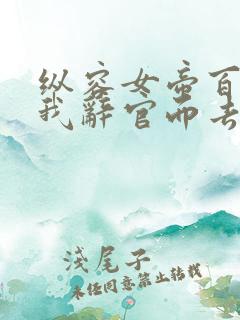 纵容女帝百
我辭官而去
淺尾子
未经同意禁止转载